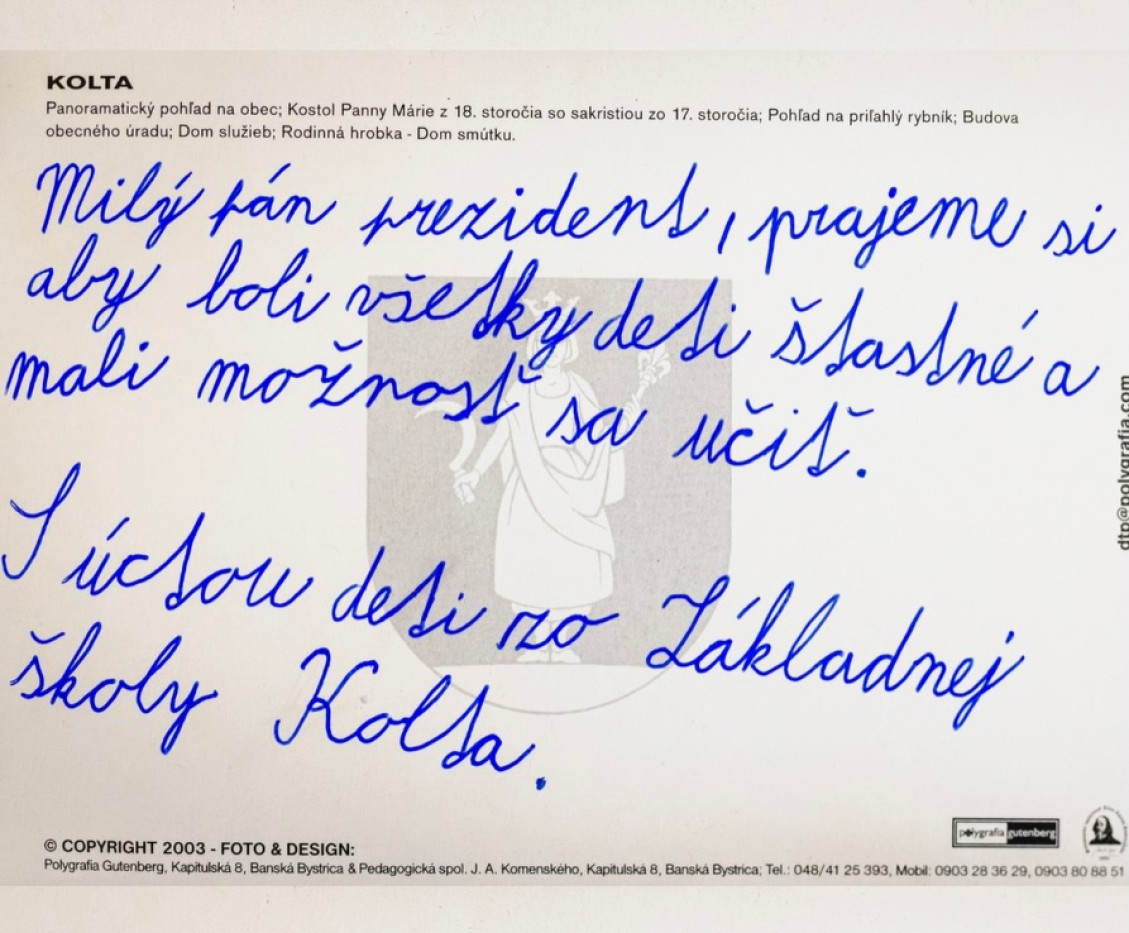 KOLTA
Panoramatický pohľad na obec; Kostol Panny Márie z 18. storočia so sakristiou zo 17. storočia; Pohľad na priľahlý rybník; Budova
obecného úradu; Dom služieb; Rodinná hrobka - Dom smútku.
Milý pán prezident, prajeme si
aby boli všetky deti šťastné a
mali možnosť sa učiť.
S úctou deti zo Základnej
školy Kolta.
dtp@polygrafia.com
polygrafia gutenberg
© COPYRIGHT 2003 - FOTO & DESIGN:
Polygrafia Gutenberg, Kapitulská 8, Banská Bystrica & Pedagogická spol. J. A. Komenského, Kapitulská 8, Banská Bystrica; Tel.: 048/41 25 393, Mobil: 0903 28 36 29, 0903 80 88 51